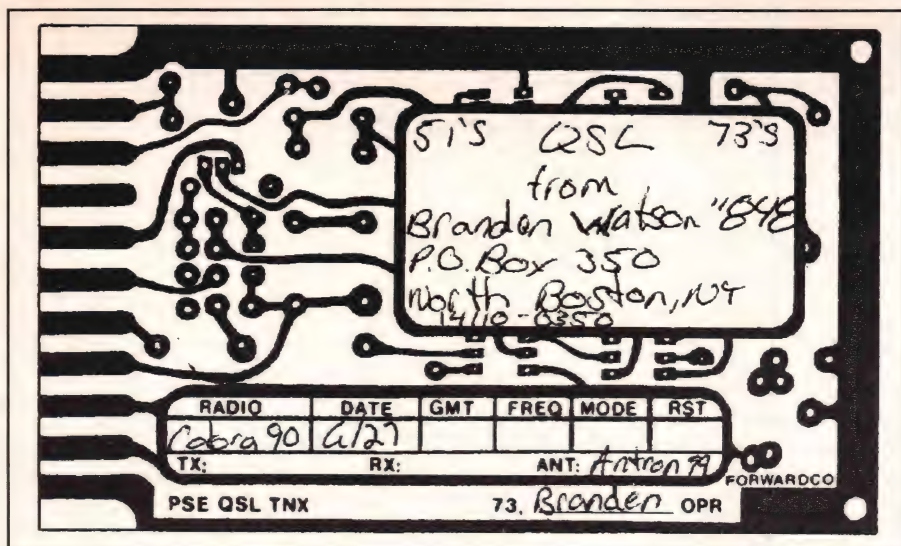 51'S QSL 73'S
from
Branden Watson "848
P.O. Box 350
North Boston, NY
14110-0350
RADIO DATE GMT FREQ MODE RST
Cobra 90 6/27
TX: RX: ANT: Antron 99
FORWARDCO
PSE QSL TNX 73, Branden OPR